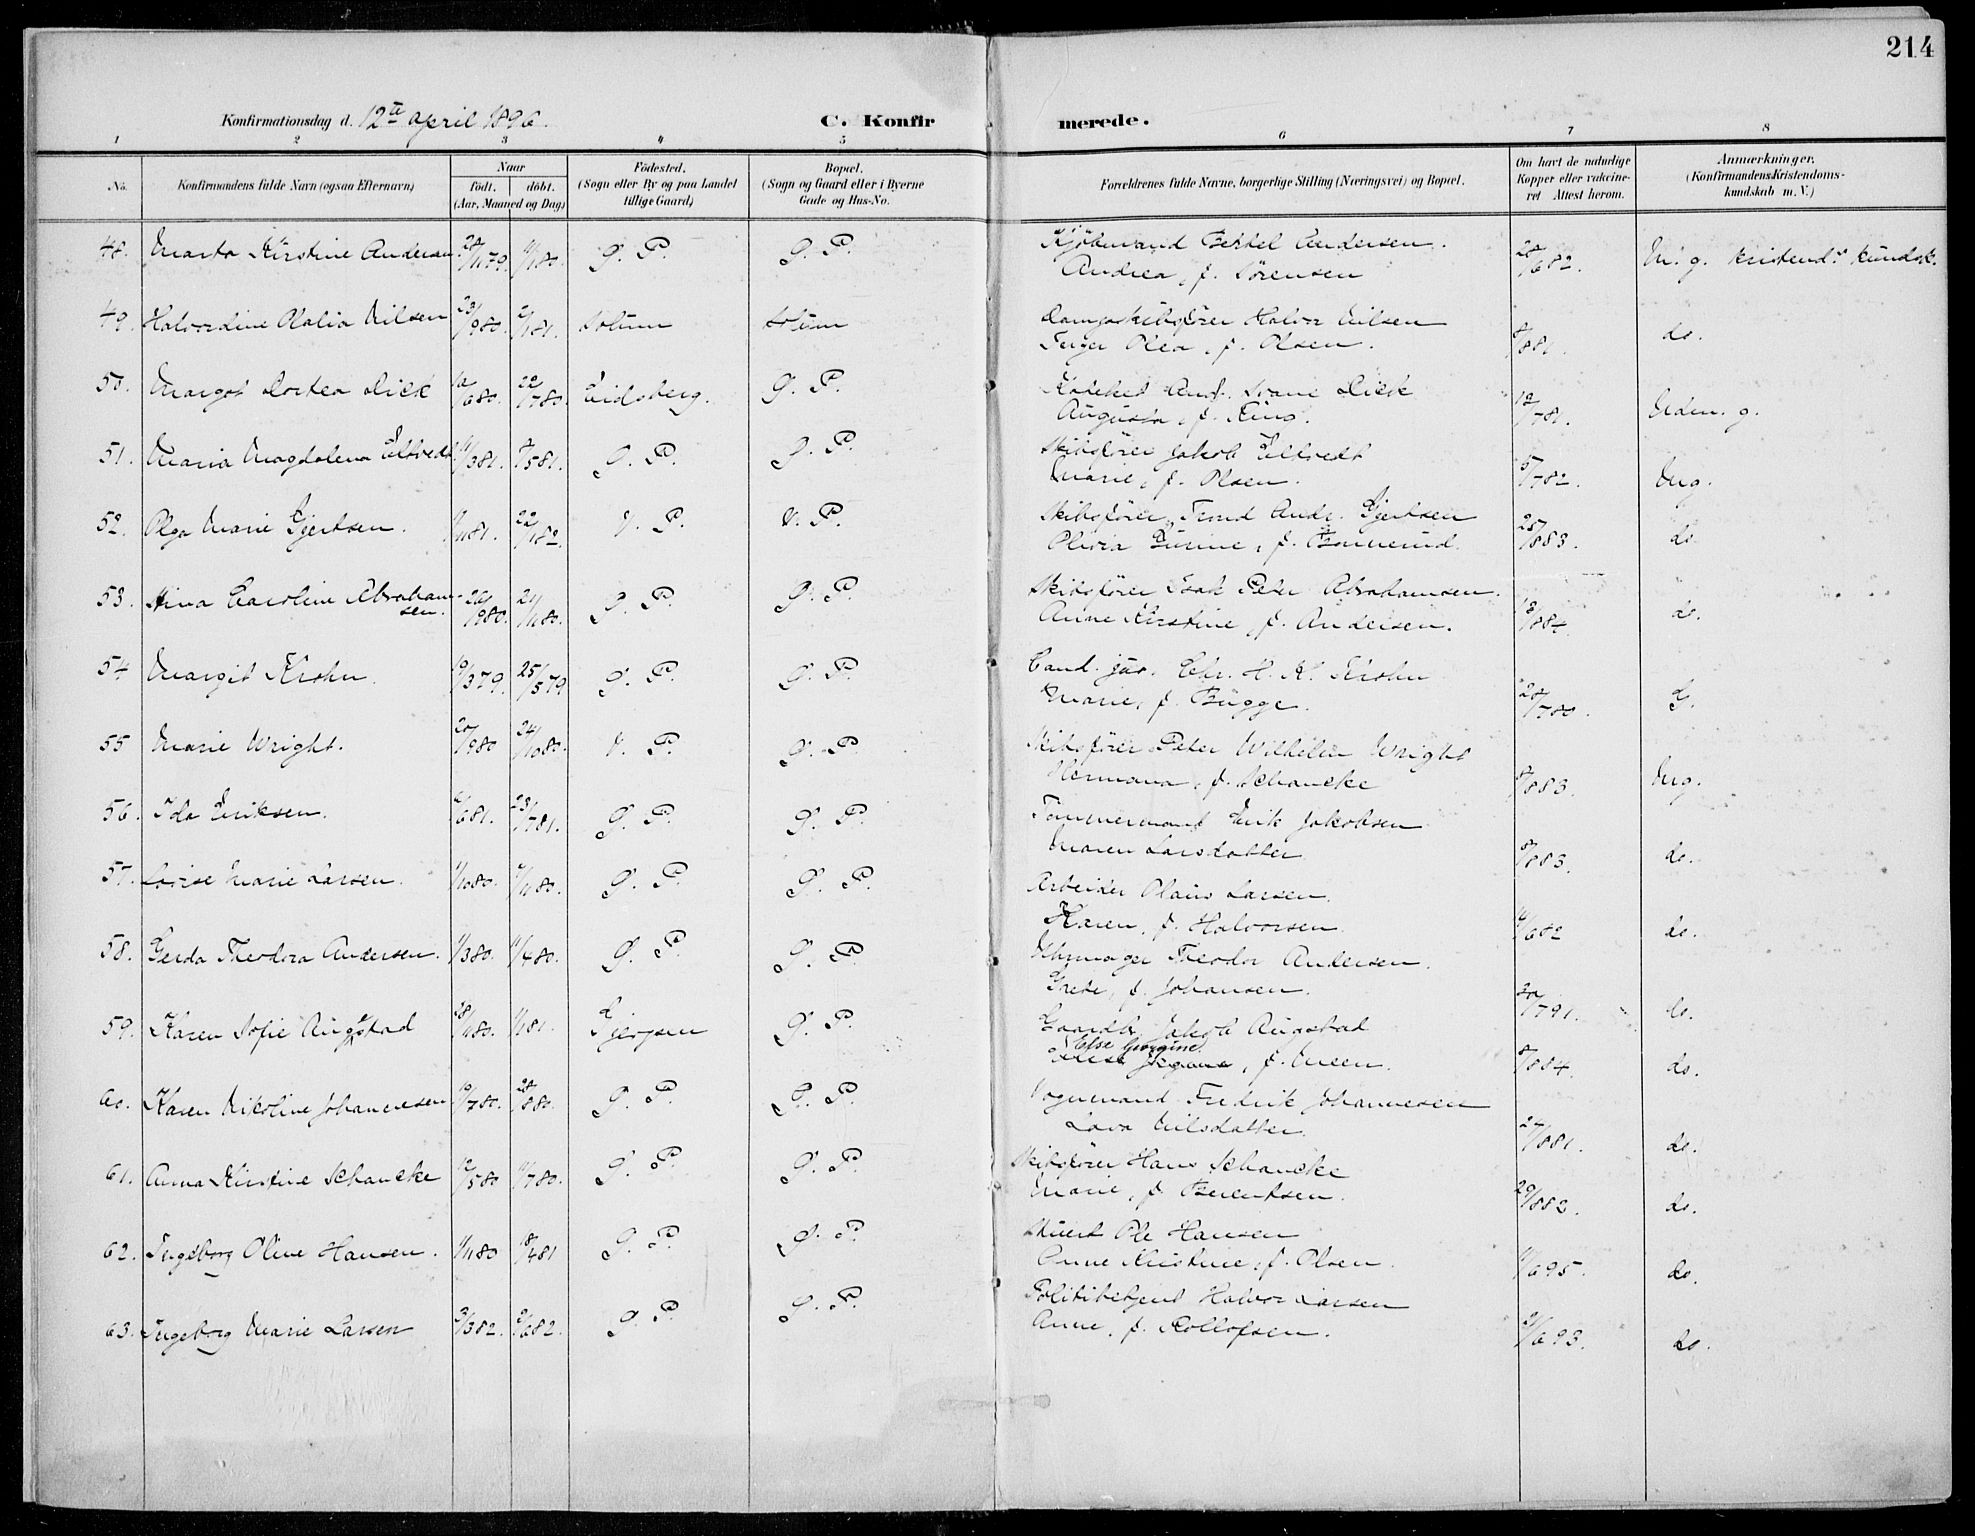 214
Konfirmationsdag d. 12te april 1896.
C. Konfir merede.
1 2 3 4 5 6 7 8
No. Konfirmandens fulde Navn (ogsaa Efternavn) Naar födt. döbt. (Aar, Maaned og Dag) Födested. (Sogn eller By og paa Landet tillige Gaard) Bopæl. (Sogn og Gaard eller i Byerne Gade og Hus-No. Forældrenes fulde Navne, borgerlige Stilling (Næringsvei) og Bopæl. Om havt de naturlige Kopper eller vakcineret Attest herom. Anmærkninger. (Konfirmandens Kristendomskundskab m. V.)
48. Marta Kirstine Andersen. 28/1179. 1/180. Ø. P. Ø. P. Kjöbmand Bertel Andersen. 28/682. M. g. kristend.s kundsk.
Andrea, f. Sörensen
49. Halvordine Olalia Nilsen 23/980. 2/181. Solum Solum Dampskibsförer Halvor Nilsen
Inger Olea, f. Olsen. 8/881. do.
50. Margot Dortea Dick 10/680. 22/780. Eidsberg. Ø. P. Dick
Augusta, f. 12/781. Uden. g.
51. Maria Magdalena Eltvedt 11/381. 7/581. Ø. P. Ø. P. Skibsförer Jakob Eltvedt
Marie, f. Olsen. 5/782. Mg.
52. Olga Marie Gjertsen. 1/1181. 22/182. V. P. V. P. Skibsförer Trond Andr. Gjertsen
Olivia Gurine, f. 25/883. do.
53. Stina Caroline Abrahamsen. 26/980. 21/1180. Ø. P. Ø. P. Skibsförer Isak Peter Abrahamsen.
Anne Kirstine, f. Andersen. 18/884. do.
54 Margit Krohn. 10/379. 25/579 Ø. P. Ø. P. Cand. jur. Chr. H. K. Krohn
Marie, f. Bügge. 28/780. G.
55 Marie Wright. 20/980 24/1080. V. P. Ø. P. Skibsförer Peter Wilhelm Wright
Hermana, f. Schancke 8/883. Mg.
56. Ida Eriksen. 6/681. 23/781. Ø. P. Ø. P. Tömmermand Erik Jakobsen
Maren Larsdatter 8/883. do.
57. Lovise Marie Larsen. 1/1080. 7/1180. Ø. P. Ø. P. Arbeider Olaus Larsen.
Karen, f. Halvorsen. 16/682 do.
58. Gerda Theodora Andersen. 1/380. 11/480. Ø. P. Ø. P. Uhrmager Theodor Andersen.
Grete, f. Johansen. 20/791. do.
59. Karen Sofie Augestad 28/1180. 1/181. Gjerpen Ø. P. Gaardb. Jakob Augestad
Else Gurine, f. Meen. 8/884. do.
60. Karen Nikoline Johannesen 10/780. 28/880. Ø. P. Ø. P. Vognmand Fredrik Johannesen
Lava Nilsdatter. 27/881. do.
61. Anna Kirstine Schancke 12/580 11/780. Ø. P. Ø. P. Skibsförer Hans Schancke
Marie, f. Berentsen. 29/882. do.
62. Ingeborg Oline Hansen. 1/1180 18/481 Ø. P. Ø. P. Ole Hansen
Anne Kirstine, f. Olsen. 11/695. do.
63. Ingeborg Marie Larsen 3/382. 3/682. Ø. P. Ø. P. Politibetjent Halvor Larsen
Anne, f. Rollofsen. 2/693. do.